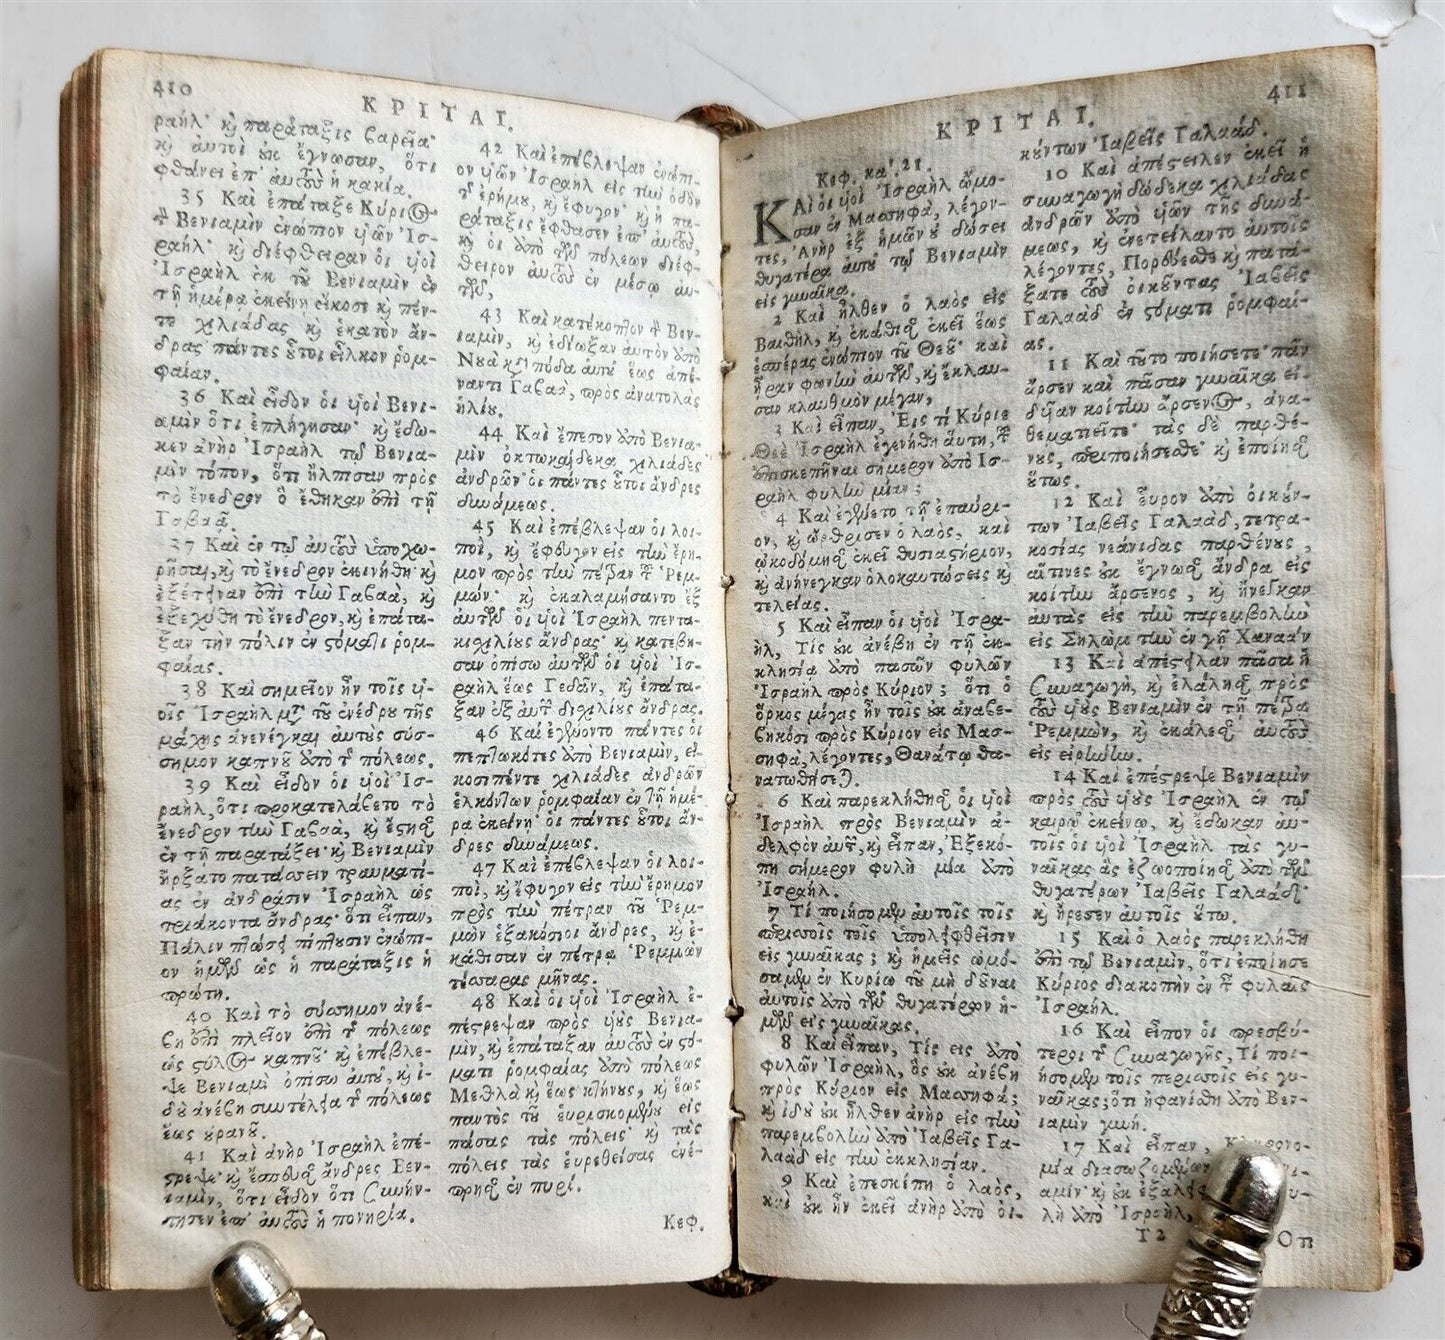 410
ΚΡΙΤΑΙ.
ραὴλ· ϗ παράταξις βαρεῖα·
ϗ αὐτοὶ ȣκ ἔγνωσαν, ὅτι
φθάνει ἐπ' αὐτȣ̀ς ἡ κακία.
35 Καὶ ἐπάταξε Κύριος
τ̀ Βενιαμὶν ἐνώπιον ὑῶν Ἰσ-
ραήλ· ϗ διέφθειραν οἱ ὑοὶ
Ἰσραὴλ ἐκ τȣ͂ Βενιαμὶν ἐν
τῇ ἡμέρᾳ ἐκείνῃ εἴκοσι ϗ πέν-
τε χιλιάδας ϗ ἑκατὸν ἄν-
δρας· πάντες ȣ̔͂τοι εἷλκον ῥομ-
φαίαν.
36 Καὶ εἶδον οἱ ὑοὶ Βενι-
αμὶν ὅτι ἐπλήγησαν· ϗ ἔδω-
κεν ἀνὴρ Ἰσραὴλ τῷ Βενια-
μὶν τόπον, ὅτι ἤλπισαν πρὸς
τὸ ἔνεδρον ὃ ἔθηκαν ἐπὶ τῇ
Γαβαᾶ.
37 Καὶ ἐν τῷ αὐτȣ̀ς ὑποχω-
ρῆσαι, ϗ τὸ ἔνεδρον ἐκινήθη· ϗ
ἐξέτειναν ἐπὶ τὴν Γαβαὰ, ϗ
ἐξεχύθη τὸ ἔνεδρον, ϗ ἐπάτα-
ξαν τὴν πόλιν ἐν ϛόματι ῥομ-
φαίας.
38 Καὶ σημεῖον ἦν τοῖς ὑ-
οῖς Ἰσραὴλ μετὰ τȣ͂ ἐνέδρȣ τῆς
μάχης ἀνενέγκαι αὐτȣ̀ς σύσ-
σημον καπνȣ͂ ἀπὸ τ͂ πόλεως.
39 Καὶ εἶδον οἱ ὑοὶ Ἰσ-
ραὴλ, ὅτι προκατελάβετο τὸ
ἔνεδρον τὴν Γαβαὰ, ϗ ἔϛησαν
ἐν τῇ παρατάξει· ϗ Βενιαμὶν
ἤρξατο πατάσσειν τραυματί-
ας ἐν ἀνδράσιν Ἰσραὴλ ὡς
τριάκοντα ἄνδρας· ὅτι εἶπαν,
Πάλιν πτώσει πίπτȣσιν ἐνώπι-
ον ἡμῶν ὡς ἡ παράταξις ἡ
πρώτη.
40 Καὶ τὸ σύσσημον ἀνέ-
βη ἐπὶ πλεῖον ἐπὶ τ͂ πόλεως
ὡς ϛύλος καπνȣ͂· ϗ ἐπέβλε-
ψε Βενιαμὶ ὀπίσω αὐτȣ͂, ϗ ἰ-
δȣ̀ ἀνέβη συντέλεια τ͂ πόλεως
ἕως ȣ̓ρανȣ͂.
41 Καὶ ἀνὴρ Ἰσραὴλ ἐπέ-
ϛρεψε· ϗ ἔσπευσαν ἄνδρες Βεν-
ιαμὶν, ὅτι εἶδον ὅτι συνήν-
τησεν ἐπ' αὐτȣ̀ς ἡ πονηρία.
42 Καὶ ἐπέβλεψαν ἐνώπι-
ον ὑῶν Ἰσραὴλ εἰς τὴν ὁδὸν
τ͂ ἐρήμȣ, ϗ ἔφυγον· ϗ ἡ πα-
ράταξις ἔφθασεν ἐπ' αὐτȣ̀ς,
ϗ οἱ ἀπὸ τῶν πόλεων διέφ-
θειρον αὐτȣ̀ς ἐν μέσῳ αὐ-
τῶν,
43 Καὶ κατέκοπτον τ̀ Βεν-
ιαμὶν, ϗ ἐδίωξαν αὐτὸν ἀπὸ
Νȣὰ κατὰ πόδα αὐτȣ͂ ἕως ἀπέ-
ναντι Γαβαὰ, πρὸς ἀνατολὰς
ἡλίȣ.
44 Καὶ ἔπεσον ἀπὸ Βενια-
μὶν ὀκτωκαίδεκα χιλιάδες
ἀνδρῶν· οἱ πάντες ȣ̔͂τοι ἄνδρες
δυνάμεως.
45 Καὶ ἐπέβλεψαν οἱ λοι-
ποὶ, ϗ ἔφευγον εἰς τὴν ἔρη-
μον πρὸς τὴν πέτραν τ͂ Ῥεμ-
μών· ϗ ἐκαλαμήσαντο ἐξ
αὐτῶν οἱ ὑοὶ Ἰσραὴλ πεντα-
κιχιλίȣς ἄνδρας· ϗ κατέβη-
σαν ὀπίσω αὐτῶν οἱ ὑοὶ Ἰσ-
ραὴλ ἕως Γεδὰν, ϗ ἐπάτα-
ξαν ἐξ αὐτ͂ διχιλίȣς ἄνδρας.
46 Καὶ ἐγένοντο πάντες οἱ
πεπτωκότες ἀπὸ Βενιαμὶν, εἰ-
κοσιπέντε χιλιάδες ἀνδρῶν
ἑλκόντων ῥομφαίαν ἐν τῇ ἡμέ-
ρᾳ ἐκείνῃ· οἱ πάντες ȣ̔͂τοι ἄν-
δρες δυνάμεως.
47 Καὶ ἐπέβλεψαν οἱ λοι-
ποὶ, ϗ ἔφυγον εἰς τὴν ἔρημον
πρὸς τὴν πέτραν τȣ͂ Ῥεμ-
μὼν ἑξακόσιοι ἄνδρες, ϗ ἐ-
κάθισαν ἐν πέτρᾳ Ῥεμμὼν
τέσσαρας μῆνας.
48 Καὶ οἱ ὑοὶ Ἰσραὴλ ἐ-
πέϛρεψαν πρὸς ὑȣ̀ς Βενια-
μὶν, ϗ ἐπάταξαν αὐτȣ̀ς ἐν ϛό-
ματι ῥομφαίας ἀπὸ πόλεως
Μεθλὰ ϗ ἕως κτήνȣς, ϗ ἕως
παντὸς τȣ͂ εὑρισκομένȣ εἰς
πάσας τὰς πόλεις· ϗ τὰς
πόλεις τὰς εὑρεθείσας ἐνέ-
πρησαν ἐν πυρί.
Κεφ.
411
ΚΡΙΤΑΙ.
Κεφ. κα'. 21.
ΚΑὶ οἱ ὑοὶ Ἰσραὴλ ὤμο-
σαν ἐν Μασσηφὰ, λέγον-
τες, Ἀνὴρ ἐξ ἡμῶν ȣ̓ δώσει
θυγατέρα αὐτȣ͂ τῷ Βενιαμὶν
εἰς γυναῖκα.
2 Καὶ ἦλθεν ὁ λαὸς εἰς
Βαιθὴλ, ϗ ἐκάθισαν ἐκεῖ ἕως
ἑσπέρας ἐνώπιον τȣ͂ Θεȣ͂· καὶ
ἦραν φωνὴν αὐτῶν, ϗ ἔκλαυ-
σαν κλαυθμὸν μέγαν,
3 Καὶ εἶπαν, Εἰς τί Κύριε
Θεὲ Ἰσραὴλ ἐγενήθη αὕτη, τ͂
ἐπισκεπῆναι σήμερον ἀπὸ Ισ-
ραὴλ φυλὴν μίαν;
4 Καὶ ἐγένετο τῇ ἐπαύρι-
ον, ϗ ὤρθρισεν ὁ λαὸς, καὶ
ᾠκοδόμησαν ἐκεῖ θυσιαϛήριον,
ϗ ἀνήνεγκαν ὁλοκαυτώσεις ϗ
τελείας.
5 Καὶ εἶπαν οἱ ὑοὶ Ἰσρα-
ὴλ, Τίς ȣκ ἀνέβη ἐν τῇ ἐκ-
κλησίᾳ ἀπὸ πασῶν φυλῶν
Ἰσραὴλ πρὸς Κύριον; ὅτι ὁ
ὅρκος μέγας ἦν τοῖς ȣκ ἀναβε-
βηκόσι πρὸς Κύριον εἰς Μασ-
σηφὰ, λέγοντες, Θανάτῳ θα-
νατωθήσεται.
6 Καὶ παρεκλήθησαν οἱ ὑοὶ
Ἰσραὴλ πρὸς Βενιαμὶν ἀ-
δελφὸν αὐτ͂, ϗ εἶπαν, Ἐξεκό-
πη σήμερον φυλὴ μία ἀπὸ
Ἰσραήλ.
7 Τί ποιήσομεν αὐτοῖς τοῖς
περισσοῖς τοῖς ὑπολειφθεῖσιν
εἰς γυναῖκας; ϗ ἡμεῖς ὠμό-
σαμεν ἐν Κυρίῳ τȣ͂ μὴ δȣ͂ναι
αὐτοῖς ἀπὸ τῶν θυγατέρων ἡ-
μῶν εἰς γυναῖκας.
8 Καὶ εἶπαν, Τίς εἷς ἀπὸ
φυλῶν Ἰσραὴλ, ὃς ȣκ ἀνέβη
πρὸς Κύριον εἰς Μασσηφά;
ϗ ἰδȣ̀ ȣκ ἦλθεν ἀνὴρ εἰς τὴν
παρεμβολὴν ἀπὸ Ἰαβεὶς Γα-
λαὰδ εἰς τὴν ἐκκλησίαν.
9 Καὶ ἐπεσκέπη ὁ λαὸς,
καὶ ȣκ ἦν ἐκεῖ ἀνὴρ ἀπὸ οἰ-
κȣ́ντων Ἰαβεῖς Γαλαάδ.
10 Καὶ ἀπέϛειλεν ἐκεῖ ἡ
συναγωγὴ δώδεκα χιλιάδας
ἀνδρῶν ἀπὸ ὑῶν τῆς δυνά-
μεως, ϗ ἐνετείλαντο αὐτοῖς
λέγοντες, Πορεύεσθε ϗ πατά-
ξατε τȣ̀ς οἰκȣ͂ντας Ἰαβεὶς
Γαλαὰδ ἐν ϛόματι ῥομφαί-
ας.
11 Καὶ τȣ͂το ποιήσετε· πᾶν
ἄρσεν καὶ πᾶσαν γυναῖκα εἰ-
δυῖαν κοίτην ἄρσενος, ἀνα-
θεματιεῖτε· τὰς δὲ παρθέ-
νȣς, περιποιήσεσθε· ϗ ἐποίησαν
ȣ̔́τως.
12 Καὶ εὗρον ἀπὸ οἰκȣ́ν-
των Ἰαβεῖς Γαλαὰδ, τετρα-
κοσίας νεάνιδας παρθένȣς,
αἵτινες ȣκ ἔγνωσαν ἄνδρα εἰς
κοίτην ἄρσενος, ϗ ἤνεγκαν
αὐτὰς εἰς τὴν παρεμβολὴν
εἰς Σηλὼμ τὴν ἐν γῇ Χαναάν
13 Καὶ ἀπέϛειλαν πᾶσα ἡ
συναγωγὴ, ϗ ἐλάλησαν πρὸς
τȣ̀ς ὑȣ̀ς Βενιαμὶν ἐν τῇ πέτρᾳ
Ῥεμμὼν, ϗ ἐκάλεσαν αὐτȣ̀ς
εἰς εἰρήνην.
14 Καὶ ἐπέϛρεψε Βενιαμὶν
πρὸς τȣ̀ς ὑȣ̀ς Ἰσραὴλ ἐν τῷ
καιρῷ ἐκείνῳ, ϗ ἔδωκαν αὐ-
τοῖς οἱ ὑοὶ Ἰσραὴλ τὰς γυ-
ναῖκας ἃς ἐζωοποίησαν ἀπὸ τῶν
θυγατέρων Ἰαβεὶς Γαλαάδ·
ϗ ἤρεσεν αὐτοῖς ȣ̔́τω.
15 Καὶ ὁ λαὸς παρεκλήθη
ἐπὶ τῷ Βενιαμὶν, ὅτι ἐποίησε
Κύριος διακοπὴν ἐν τ͂ φυλαῖς
Ἰσραήλ.
16 Καὶ εἶπον οἱ πρεσβύ-
τεροι τ͂ συναγωγῆς, Τί ποι-
ήσομεν τοῖς περισσοῖς εἰς γυ-
ναῖκας; ὅτι ἠφανίσθη ἀπὸ Βεν-
ιαμὶν γυνή.
17 Καὶ εἶπαν,
μία διασωζομένων
αμίν· ϗ ȣκ
λὴ ἀπὸ Ἰσραὴλ,
T 2
Ὁπ